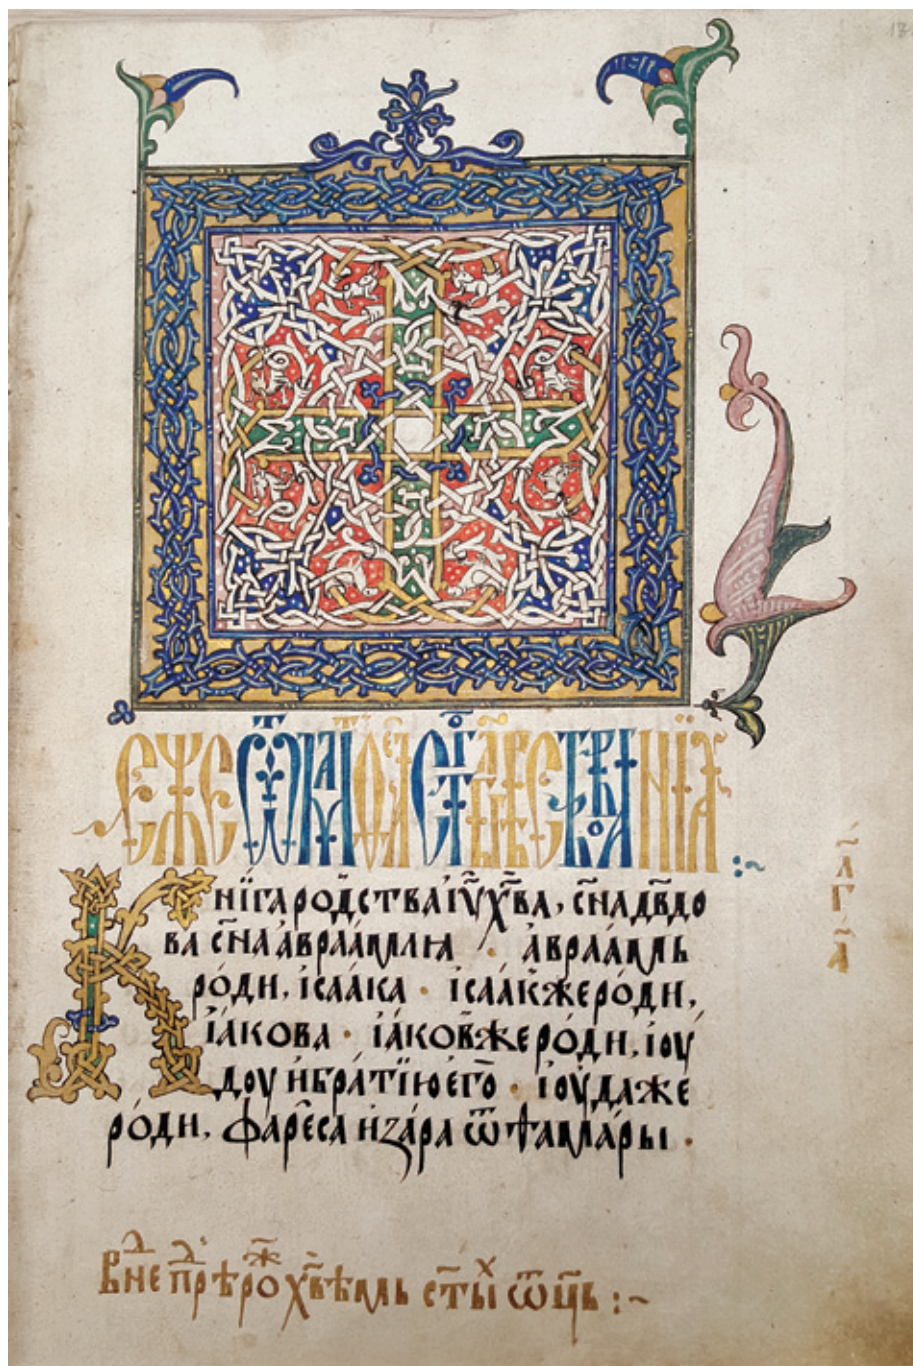 еже ѿ маѳеа ст҃ое бл҃говѣствованїа :~
Кнїга родства і҆у҃ х҃ва, сн҃а дв҃до
ва сн҃а а҆враа́мля · а҆враа́мь
ро́ди, і҆саа́ка · і҆саа́к же ро́ди,
і҆а́кова · і҆а́ков же ро́ди, і҆оу́
доу и҆ бра́тїю е҆го̀ · і҆оу́да же
ро́ди, фаре́са и҆ за́ра ѿ ѳама́ры ·
гл҃а а҃
в нед пре́д рож х҃вѣмь ст҃ы́х ѿц҃ь :~